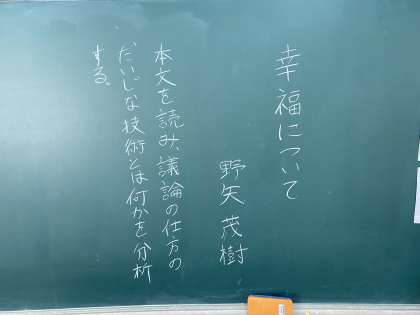 幸福について
野矢茂樹
本文を読み、議論の仕方の
だいじな技術とは何かを分析
する。